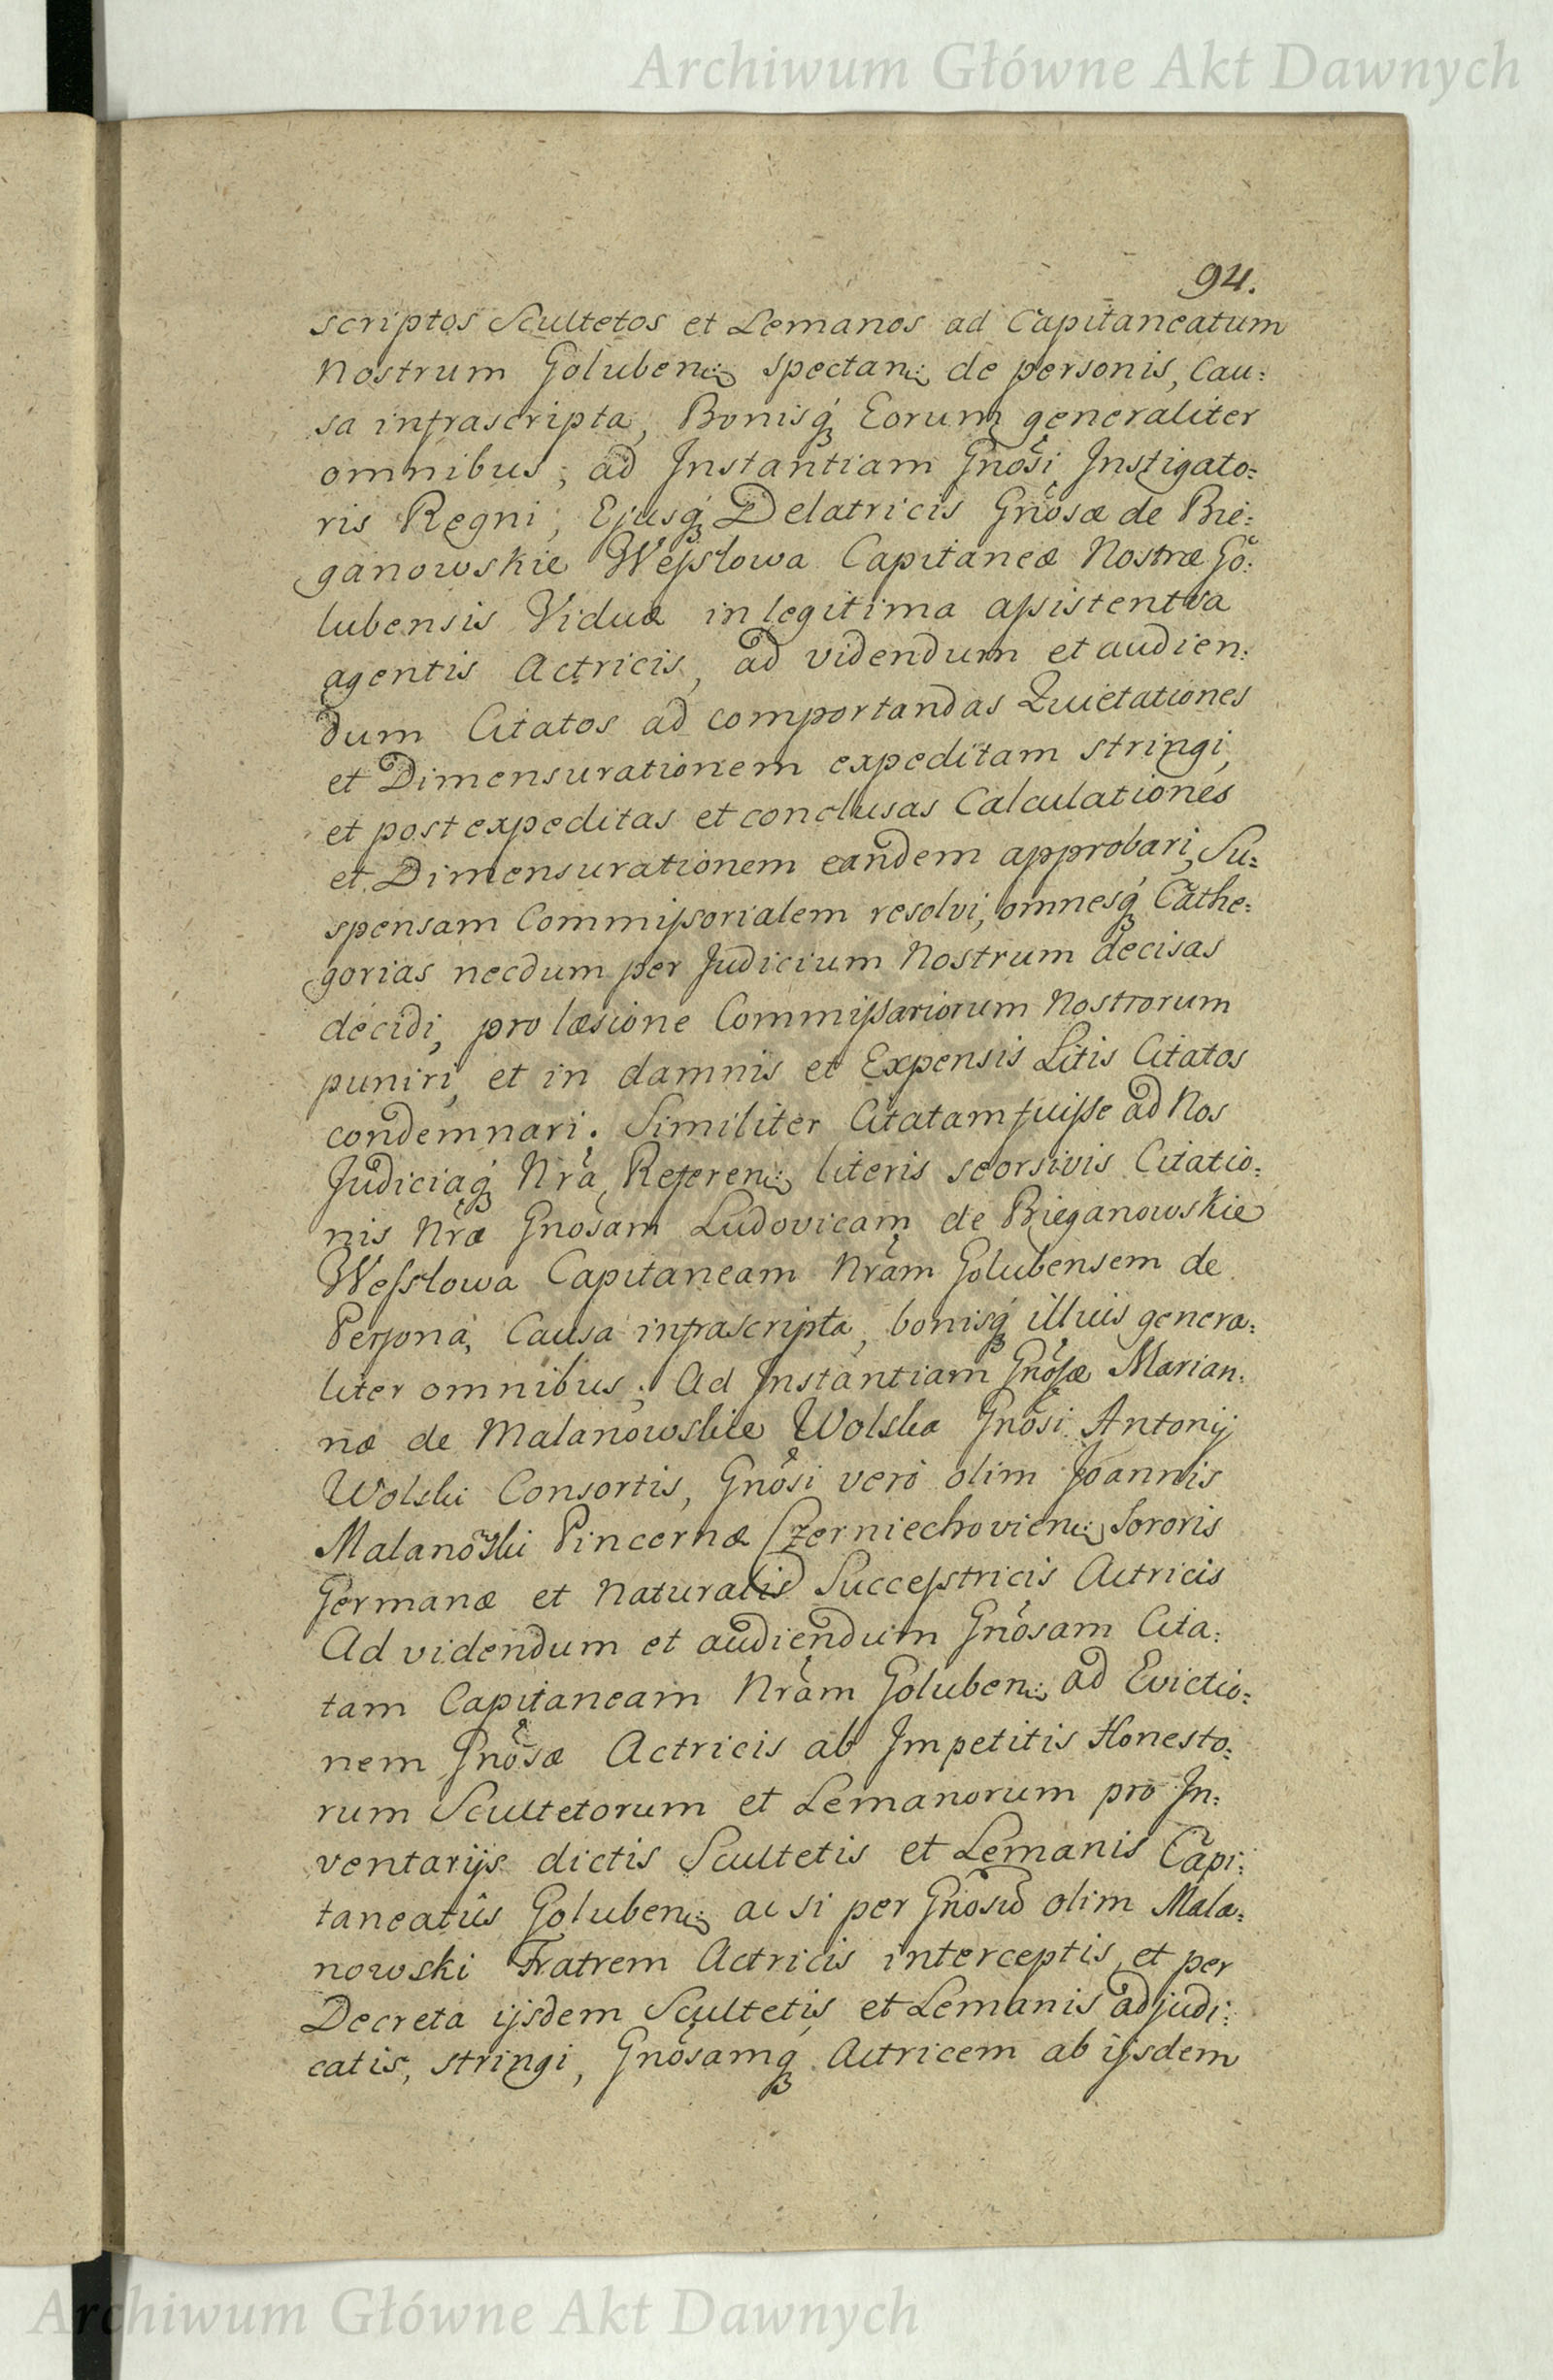 Archiwum Główne Akt Dawnych
94.
scriptos Scultetos et Lemanos ad Capitaneatum
Nostrum Goluben: spectan: de personis, Cau:
sa infrascripta, Bonisq́ Eorum generaliter
omnibus, ad Instantiam Gnosi Instigato:
ris Regni, Ejusq́ Delatricis Gnosæ de Bie:
ganowskie Wessłowa Capitaneæ Nostræ Go:
lubensis Viduæ in legitima assistentia
agentis Actricis, ad videndum et audien:
dum Citatos ad comportandas Quietationes
et Dimensurationem expeditam stringi,
et post expeditas et conclusas Calculationes
et Dimensurationem eandem approbari, Su:
spensam Commissorialem resolvi, omnesq́ Cathe:
gorias necdum per Judicium Nostrum decisas
decidi, pro læsione Commissariorum Nostrorum
puniri, et in damnis et Expensis Litis Citatos
condemnari. Similiter Citatam fuisse ad Nos
Judiciaq́ Nra, Referen: literis seorsivis Citatio:
nis Nræ Gnosam Ludovicam de Bieganowskie
Wessłowa Capitaneam Nram Golubensem de
Persona, Causa infrascripta, bonisq́ illius genera:
liter omnibus, Ad Instantiam Gnosæ Marian:
næ de Malanowskie Wolska Gnosi Antonij
Wolski Consortis, Gnosi verò olim Joannis
Malanoski Pincernæ Czerniechovien: Sororis
Germanæ et Naturalis Successtricis Actricis
Ad videndum et audiendum Gnosam Cita:
tam Capitaneam Nram Goluben: ad Evictio:
nem Gnosæ Actricis ab Impetitis Honesto:
rum Scultetorum et Lemanorum pro In:
ventarijs dictis Scultetis et Lemanis Capi:
taneatûs Goluben: ac si per Gnosum olim Mala:
nowski Fratrem Actricis interceptis, et per
Decreta ijsdem Scultetis et Lemanis adjudi:
catis, stringi, Gnosamq́ Actricem ab ijsdem
Archiwum Główne Akt Dawnych